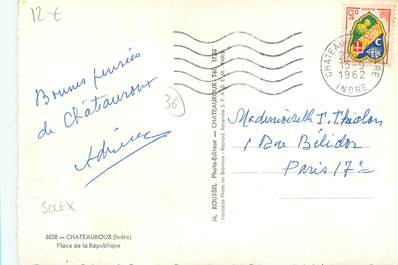 12 €
Bonnes pensées
de Châteauroux
36
SOLEX
6038 — CHATEAUROUX (Indre)
Place de la République
M. ROUSSEL Photo-Editeur — CHATEAUROUX Tél. 17.33
POSTES
CHATEAUROUX
1962
INDRE
Mademoiselle
1 Rue Bélidor
Paris 17e